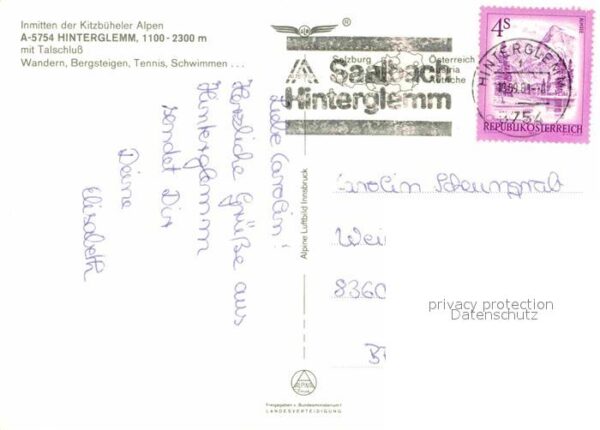 Inmitten der Kitzbüheler Alpen
A-5754 HINTERGLEMM, 1100-2300 m
mit Talschluß
Wandern, Bergsteigen, Tennis, Schwimmen ...
Liebe Carolin!
Herzliche Grüße aus
Hinterglemm
sendet Dir
Deine
Elisabeth
Alpine Luftbild Innsbruck
ALPINE
Freigegeben v. Bundesministerium f.
LANDESVERTEIDIGUNG
Salzburg Österreich
Saalbach
Hinterglemm
4S
REPUBLIK ÖSTERREICH
HINTERGLEMM
5754
Carolin
Wei
8360
privacy protection
Datenschutz